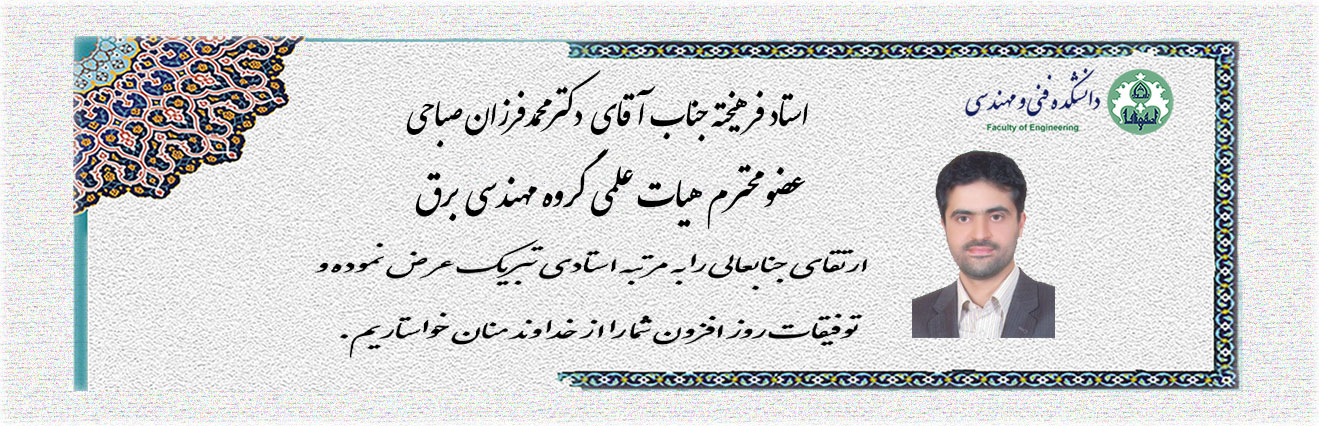 دانشکده فنی و مهندسی
Faculty of Engineering
استاد فرهیخته جناب آقای دکتر محمد فرزان صباحی
عضو محترم هیات علمی گروه مهندسی برق
ارتقای جنابعالی را به مرتبه استادی تبریک عرض نموده و
توفیقات روز افزون شما را از خداوند منان خواستاریم.